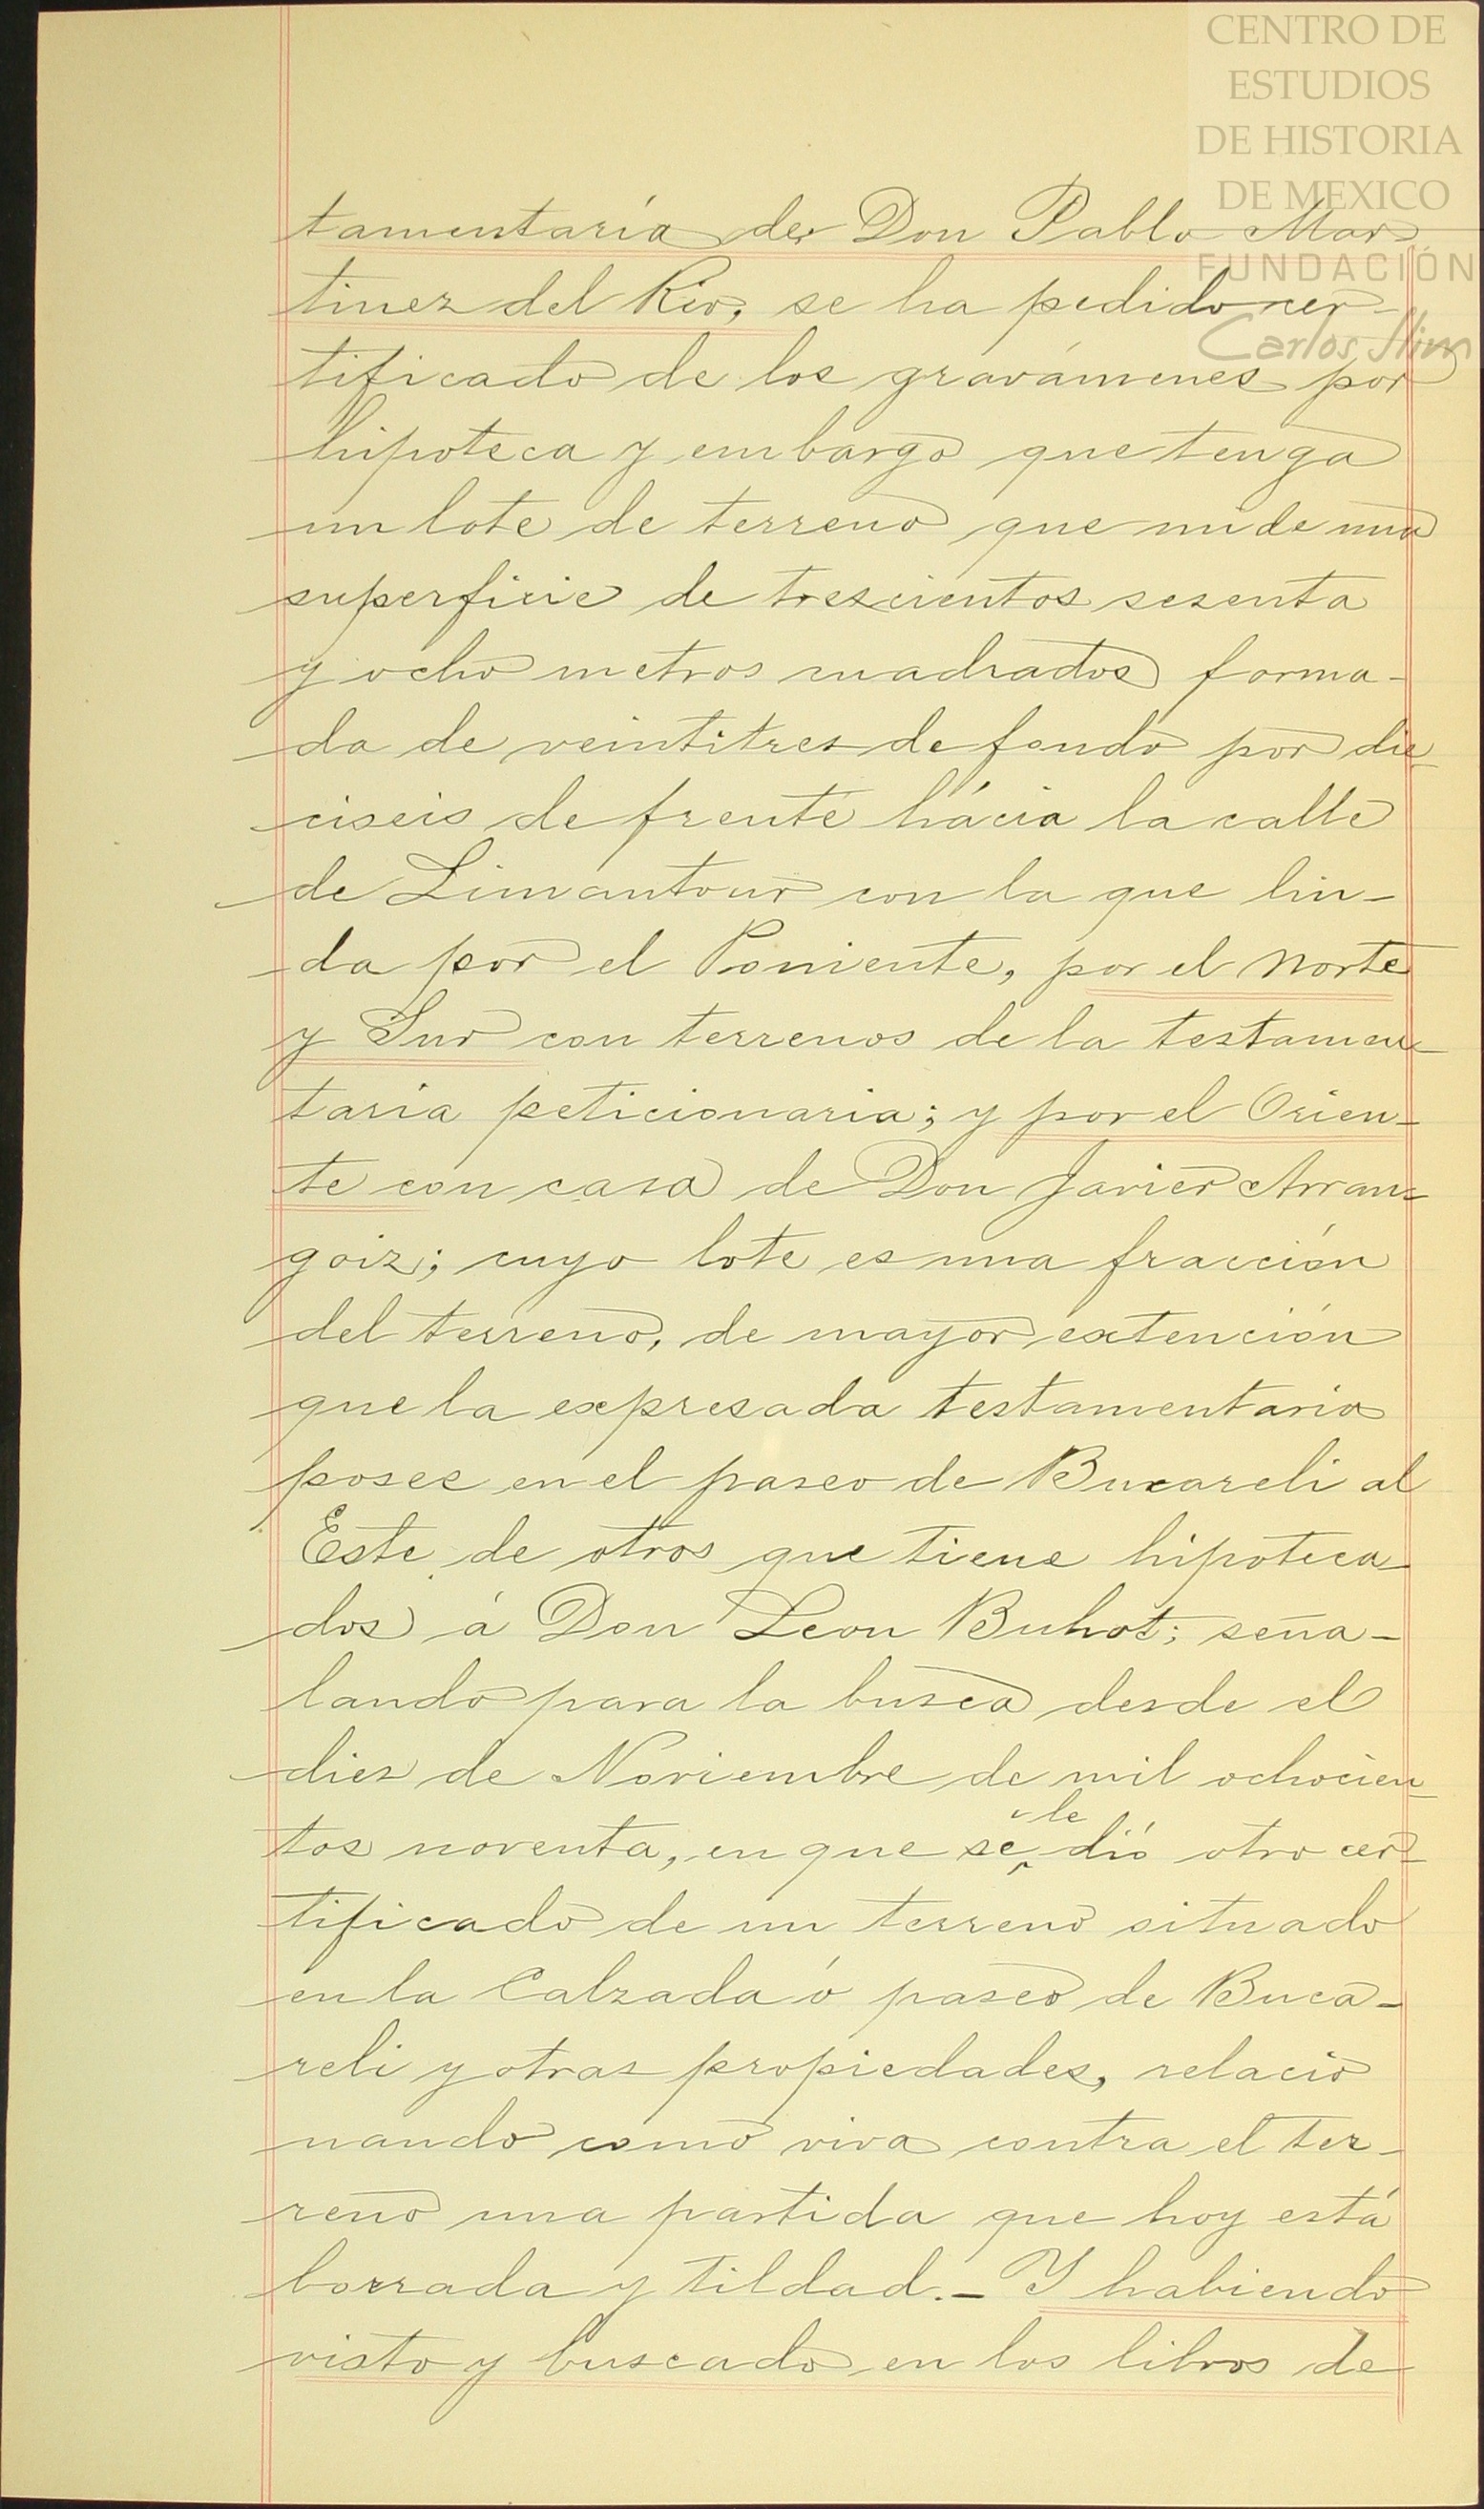 CENTRO DE
ESTUDIOS
DE HISTORIA
DE MEXICO
FUNDACIÓN
Carlos Slim
tamentaría de Don Pablo Mar-
tinez del Rio, se ha pedido cer-
tificado de los gravámenes por
hipoteca y embargo que tenga
un lote de terreno que mide una
superficie de trescientos sesenta
y ocho metros cuadrados forma-
da de veintitres de fondo por die-
ciseis de frente hácia la calle
de Limantour con la que lin-
da por el Poniente, por el Norte
y Sur con terrenos de la testamen-
taria peticionaria; y por el Orien-
te con casa de Don Javier Arran-
goiz; cuyo lote es una fracción
del terreno, de mayor extención
que la expresada testamentaria
posee en el paseo de Bucareli al
Este de otros que tiene hipoteca-
dos á Don Leon Buhot; seña-
lando para la busca desde el
diez de Noviembre de mil ochocien-
tos noventa, en que se le dió otro cer-
tificado de un terreno situado
en la Calzada ó paseo de Buca-
reli y otras propiedades, relacio
nando como viva contra el ter-
reno una partida que hoy está
borrada y tildad.- Y habiendo
visto y buscado en los libros de